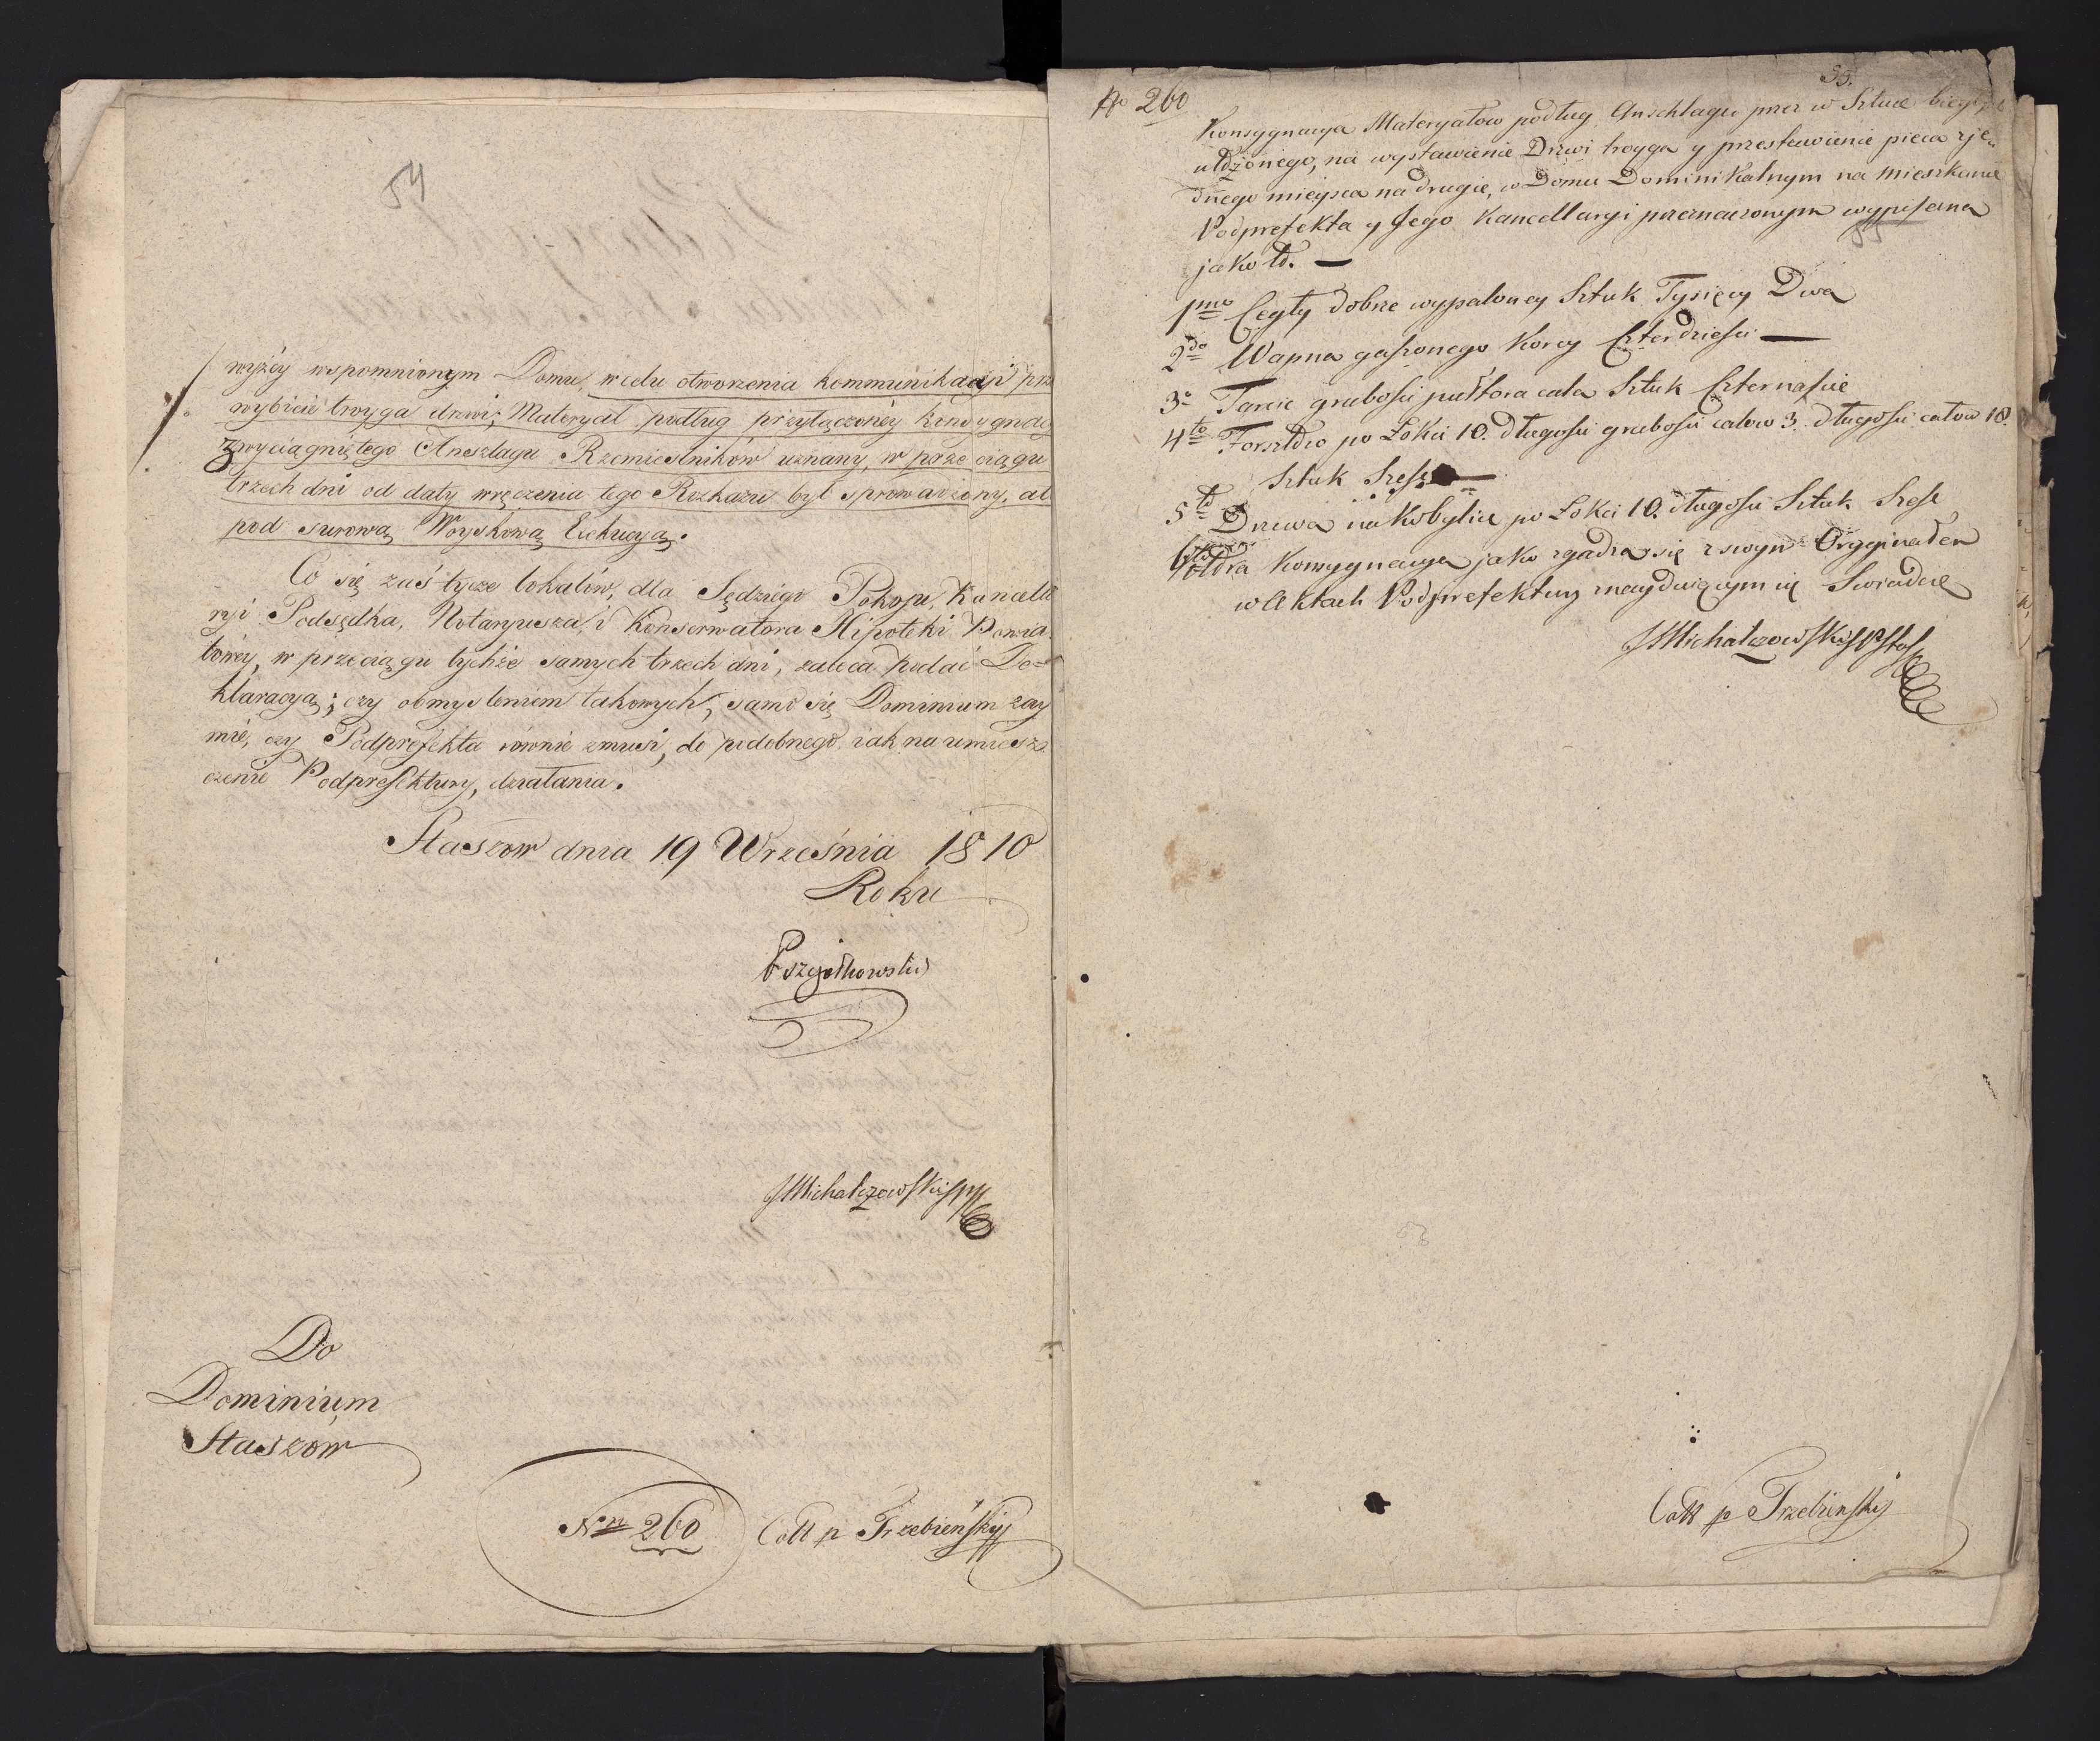 54
wyżéy wspomnionym Domu, w celu otworzenia kommunikacyi prz
wybicie troyga drzwi; Materyał podług przyłączonéy konsygnacy
z wyciągniętego Anszlagu Rzemieslników uznany, w prze ciągu
trzech dni od daty wręczenia tego Rozkazu był sprowadzony, al
pod surową Woyskową Exekucyą.
Co się zaś tycze lokalów, dla Sędziego Pokoju, Kancella
ryi Podsędka, Notaryusza, i Konserwatora Hipoteki Powia
towéy, w przeciągu tychże samych trzech dni, zaleca podać De=
klaracyą; czy obmysleniem takowych, samo się Dominium zay
mie, czy Podprefekta równie zmusi, do podobnego, iak na umiesz
czenie Podprefektury, działania.
Staszow dnia 19 Września 1810
Roku
JMichałczowski
Do
Dominium
Staszów
Nro 260 Coll p Trzebieński
No 260
55.
Konsygnacya Materyałow podług Anschlagu przez w Sztuce biegłych
uldżonego, na wystawienie Drzwi troyga y przestawienie pieca z je=
dnego mieysca na drugie, w Domu Dominikalnym na mieszkanie
Podprefekta y Jego Kancellaryi przeznaczonym wypisana
55
jako to. —
1mo Cegły dobrze wypaloney Sztuk Tysięcy Dwa
2do Wapna gaszonego Korcy Czterdzieści —
3o Tarcic grubości pułtora cala Sztuk Czternaście
4to Forsztów po Łokci 10. długości grubości calow 3. długości calow 18.
Sztuk Sześć —
5to Drzewa na Kobylice po Łokci 10. długości Sztuk Sześć
Która Konsygnacya jako zgadza się z swym Oryginałem
w Aktach Podprefektury znayduiącym się Swiadczę
JMichałczowski
Coll p Trzebinski